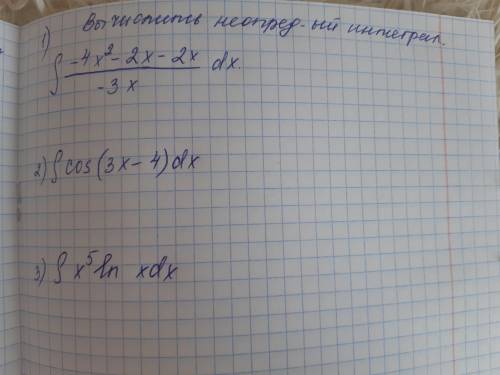 1) Вычислить неопред-ый интеграл.
∫ (-4x² - 2x - 2x)/(-3x) dx.
2) ∫ cos(3x - 4)dx
3) ∫ x⁵ ln xdx